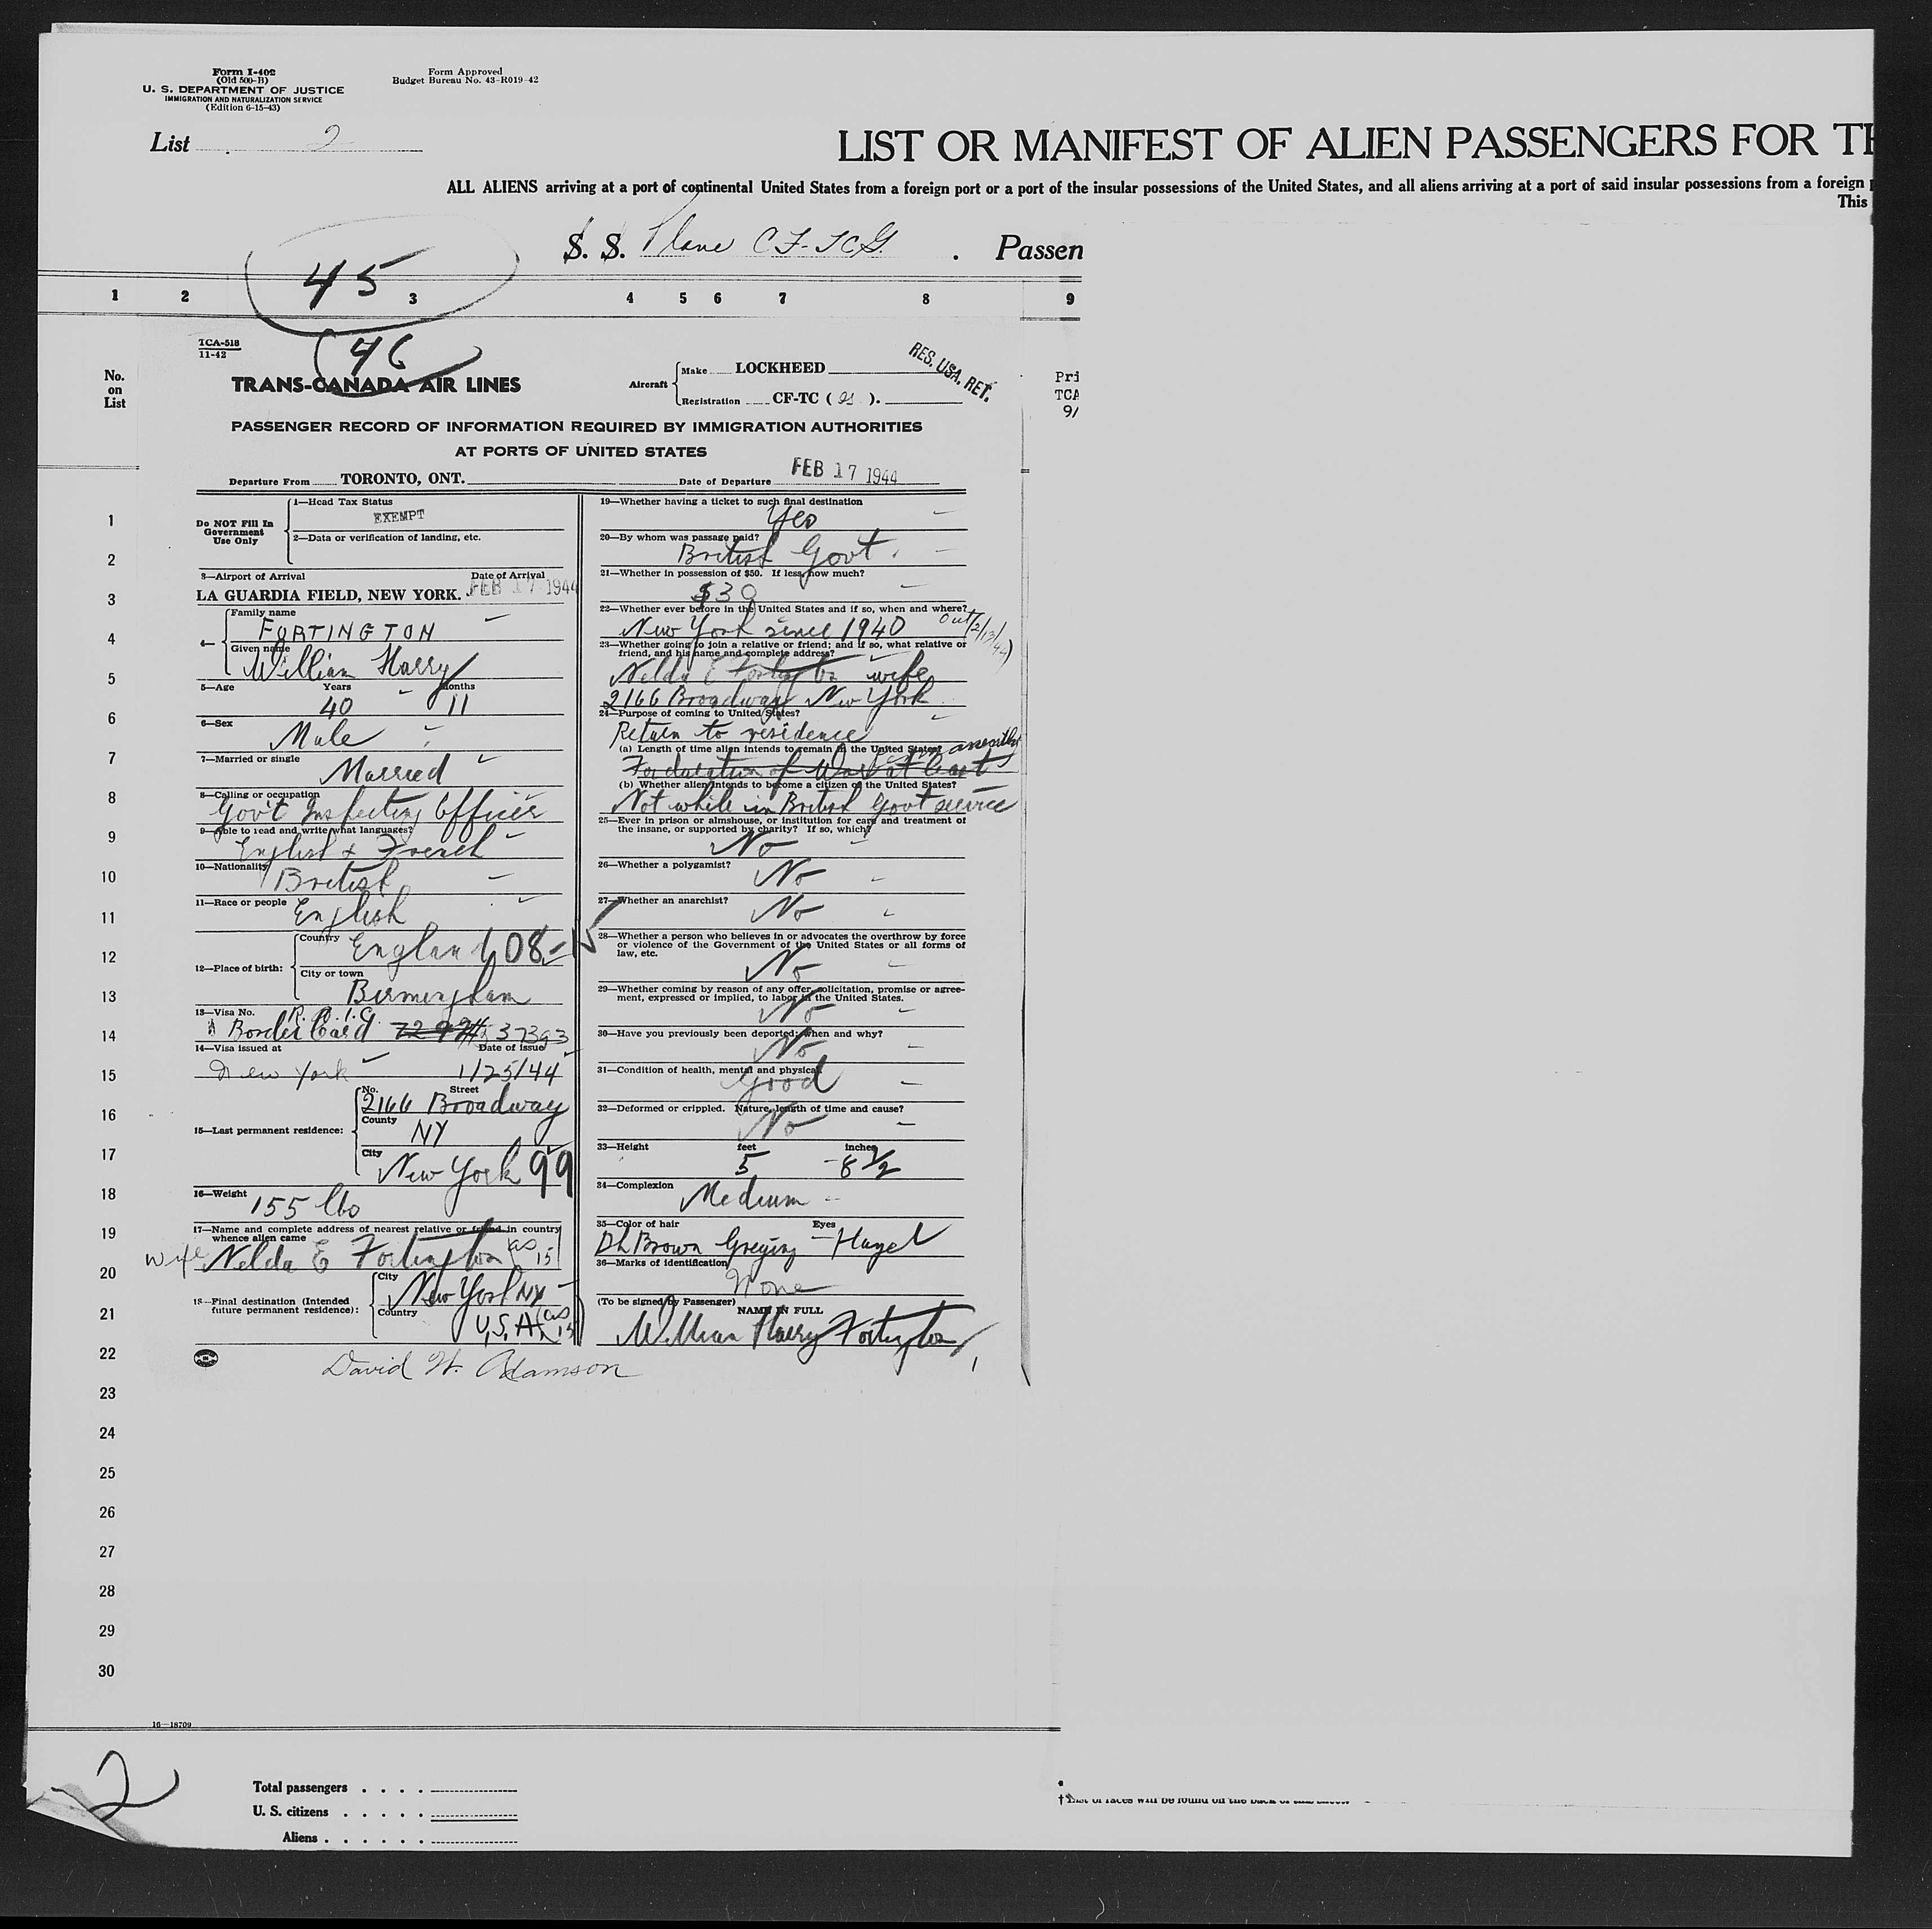 Form I-402
(Old 500-B)
U. S. DEPARTMENT OF JUSTICE
IMMIGRATION AND NATURALIZATION SERVICE
(Edition 6-15-43)
Form Approved
Budget Bureau No. 43-R019-42
List 2
LIST OR MANIFEST OF ALIEN PASSENGERS FOR TH
ALL ALIENS arriving at a port of continental United States from a foreign port or a port of the insular possessions of the United States, and all aliens arriving at a port of said insular possessions from a foreign p
This
S. S. Plane CF-TCG. Passen
45
1 2 3 4 5 6 7 8 9
46
TCA-518
11-42
TRANS-CANADA AIR LINES
Aircraft Make LOCKHEED
Registration CF-TC ( G ).
RES. USA. RET.
No.
on
List
Pri
TCA
9/
PASSENGER RECORD OF INFORMATION REQUIRED BY IMMIGRATION AUTHORITIES
AT PORTS OF UNITED STATES
Departure From TORONTO, ONT. Date of Departure FEB 17 1944
Do NOT Fill In
Government
Use Only
1—Head Tax Status
EXEMPT
2—Data or verification of landing, etc.
3—Airport of Arrival Date of Arrival
LA GUARDIA FIELD, NEW YORK. FEB 17 1944
4— Family name
FORTINGTON
Given name
William Harry
5—Age Years Months
40 11
6—Sex
Male
7—Married or single
Married
8—Calling or occupation
Gov't Inspecting Officer
9—Able to read and write what languages?
English & French
10—Nationality
British
11—Race or people
English
12—Place of birth:
Country
England 08
City or town
Birmingham
13—Visa No.
Border Card 37393
14—Visa issued at Date of issue
New York 1/25/44
15—Last permanent residence:
No. Street
2166 Broadway
County
NY
City
New York 99
16—Weight
155 lbs
17—Name and complete address of nearest relative or friend in country
whence alien came
wife Nelda E Fortington (as 15)
18—Final destination (Intended
future permanent residence):
City
New York NY
Country
U.S.A. (as 15)
19—Whether having a ticket to such final destination
Yes
20—By whom was passage paid?
British Govt.
21—Whether in possession of $50. If less, how much?
$30
22—Whether ever before in the United States and if so, when and where?
New York since 1940 out (2/13/44)
23—Whether going to join a relative or friend; and if so, what relative or
friend, and his name and complete address?
Nelda E Fortington wife
2166 Broadway New York
24—Purpose of coming to United States?
Return to residence
(a) Length of time alien intends to remain in the United States?
For duration of War at least
(b) Whether alien intends to become a citizen of the United States?
Not while in British Govt service
25—Ever in prison or almshouse, or institution for care and treatment of
the insane, or supported by charity? If so, which?
No
26—Whether a polygamist?
No
27—Whether an anarchist?
No
28—Whether a person who believes in or advocates the overthrow by force
or violence of the Government of the United States or all forms of
law, etc.
No
29—Whether coming by reason of any offer, solicitation, promise or agree-
ment, expressed or implied, to labor in the United States.
No
30—Have you previously been deported; when and why?
No
31—Condition of health, mental and physical.
Good
32—Deformed or crippled. Nature, length of time and cause?
No
33—Height feet inches
5 8 1/2
34—Complexion
Medium
35—Color of hair Eyes
Dk Brown Greying Hazel
36—Marks of identification
None
(To be signed by Passenger)
NAME IN FULL
William Harry Fortington
David W. Adamson
1
2
3
4
5
6
7
8
9
10
11
12
13
14
15
16
17
18
19
20
21
22
23
24
25
26
27
28
29
30
16—18709
2
Total passengers
U. S. citizens
Aliens
† List of races will be found on the back of this sheet.